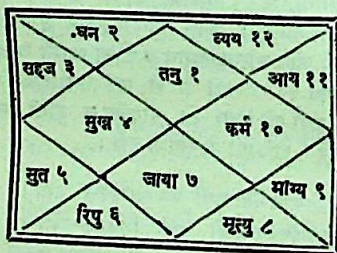 धन २ व्यय १२
सहज ३ तनु १ आय ११
सुख ४ कर्म १०
सुत ५ जाया ७ भाग्य ९
रिपु ६ मृत्यु ८